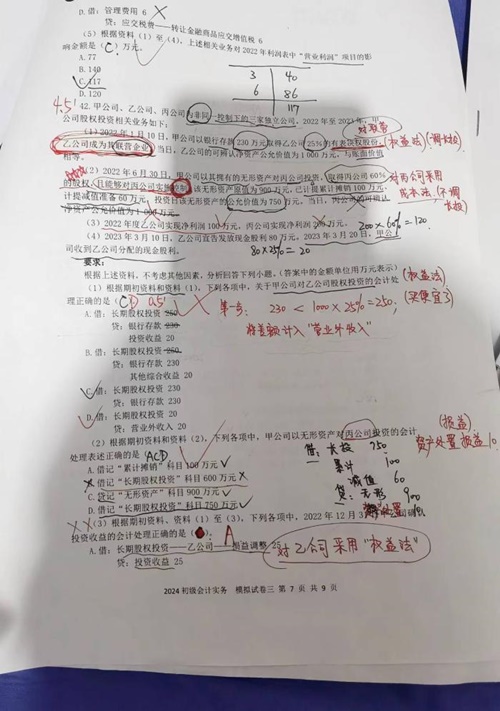 D.借：管理费用 6
贷：应交税费——转让金融商品应交增值税 6
（5）根据资料（1）至（4），上述相关业务对2022年利润表中“营业利润”项目的影
响金额是（C）万元。
A.77
B.140
C.117
D.120
3 40
6 86
117
4.5'
42.甲公司、乙公司、丙公司为非同一控制下的三家独立公司。2022年至2023年，甲
公司股权投资相关业务如下：
（1）2022年1月10日，甲公司以银行存款230万元取得乙公司25%的有表决权股份，
乙公司成为其联营企业，当日，乙公司的可辨认净资产公允价值为1 000万元，与账面价值
相等。
（权益法）
（2）2022年6月30日，甲公司以其拥有的无形资产对丙公司投资，取得丙公司60%
的股权，且能够对丙公司实施控制，该无形资产原值为900万元，已计提累计摊销100万元，
计提减值准备60万元，投资日该无形资产的公允价值为750万元，当日，丙公司的可辨认
净资产公允价值为1 000万元。
对丙公司采用
成本法（不调
长投）
（3）2022年度乙公司实现净利润100万元，丙公司实现净利润200万元。
200×60%=120
（4）2023年3月10日，乙公司宣告发放现金股利80万元，2023年3月20日，甲公
司收到乙公司分配的现金股利。
80×25%=20
要求：
根据上述资料，不考虑其他因素，分析回答下列小题。（答案中的金额单位用万元表示）
（1）根据期初资料和资料（1），下列各项中，关于甲公司对乙公司股权投资的会计处
理正确的是（CD
0.5'
（权益法）
（买便宜了）
第一步：230 < 1000×25%=250，
将差额计入“营业外收入”
A.借：长期股权投资 250
贷：银行存款 230
投资收益 20
B.借：长期股权投资 250
贷：银行存款 230
其他综合收益 20
C.借：长期股权投资 230
贷：银行存款 230
D.借：长期股权投资 20
贷：营业外收入 20
（2）根据期初资料和资料（2），下列各项中，甲公司以无形资产对丙公司投资的会计
处理表述正确的是（ACD
A.借记“累计摊销”科目100万元
B.借记“长期股权投资”科目600万元
C.贷记“无形资产”科目900万元
D.借记“长期股权投资”科目750万元
借：长投 750
累计 100
减值 60
贷：无形 900
（损益）
资产处置损益 10
（3）根据期初资料、资料（1）至（3），下列各项中，2022年12月3
投资收益的会计处理正确的是（
A
A.借：长期股权投资——乙公司——损益调整 25
贷：投资收益 25
对乙公司采用“权益法”
2024初级会计实务 模拟试卷三 第 7 页 共 9 页